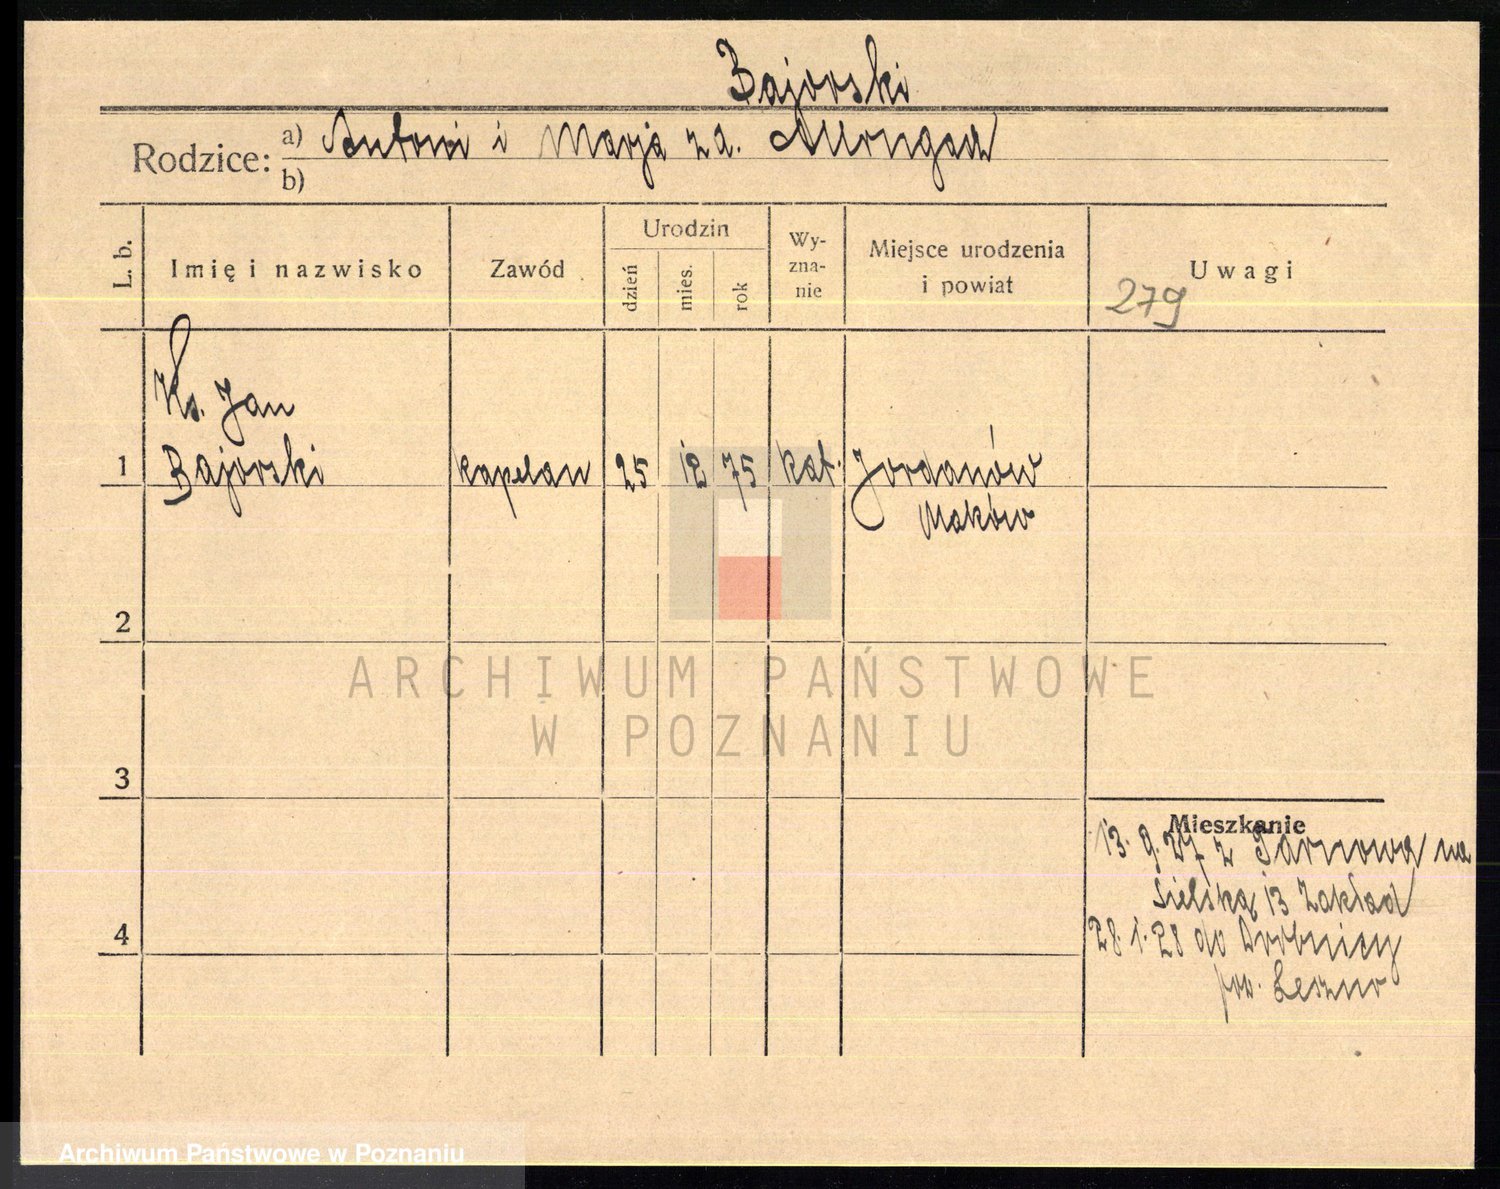 Bajorski
Rodzice: a) Antoni i Marja zd.
b)
L. b. Imię i nazwisko Zawód Urodzin dzień mies. rok Wy- zna- nie Miejsce urodzenia i powiat Uwagi
279
Ks. Jan
1 Bajorski kapelan 25 12 75 kat. Jordanów
Maków
2
ARCHIWUM PAŃSTWOWE
W POZNANIU
3
Mieszkanie
13. 9. 27 z Tarnowa na
Sielską 13 Zakład
4
28. 1. 28 do Drobnicy
pow. Leszno
Archiwum Państwowe w Poznaniu